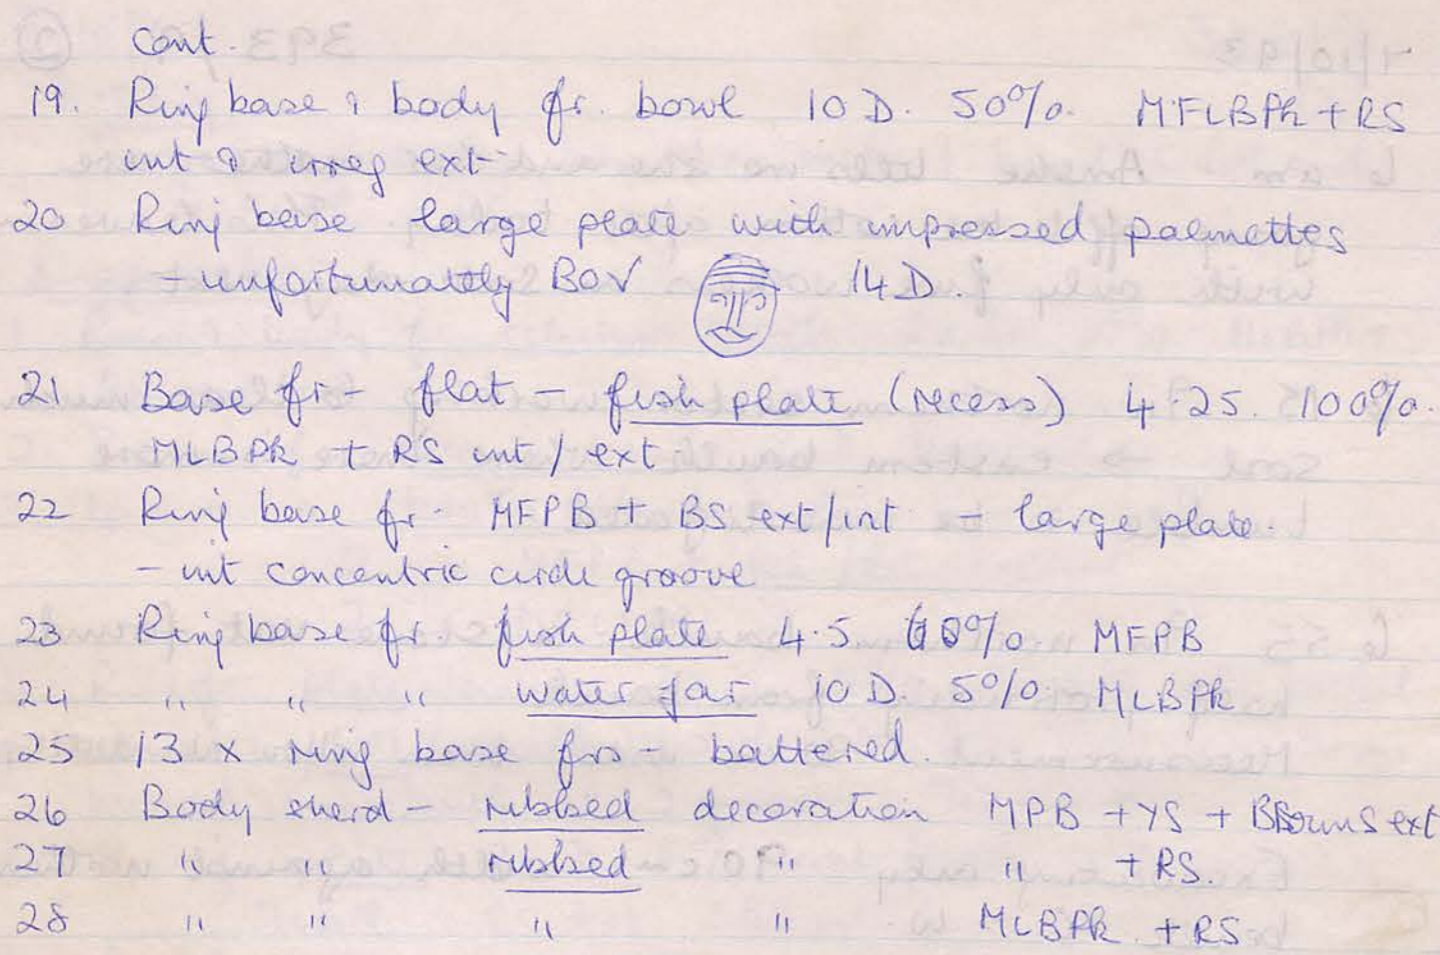 cont.
19. Ring base & body fr. bowl 10 D. 50%. MFLBPk + RS
int & irreg ext
20 Ring base large plate with impressed palmettes
- unfortunately BOV 14 D.
21 Base fr - flat - fish plate (recess) 4.25. 100%.
MLBPk + RS int / ext
22 Ring base fr. MFPB + BS ext/int - large plate.
- int concentric circle groove
23 Ring base fr. fish plate 4.5 MFPB
24 " " " water jar 10 D. 5%. MLBPk
25 13 x ring base frs - battered.
26 Body sherd - ribbed decoration MPB + YS + ext
27 " " ribbed " " + RS.
28 " " " " MLBPk. + RS.